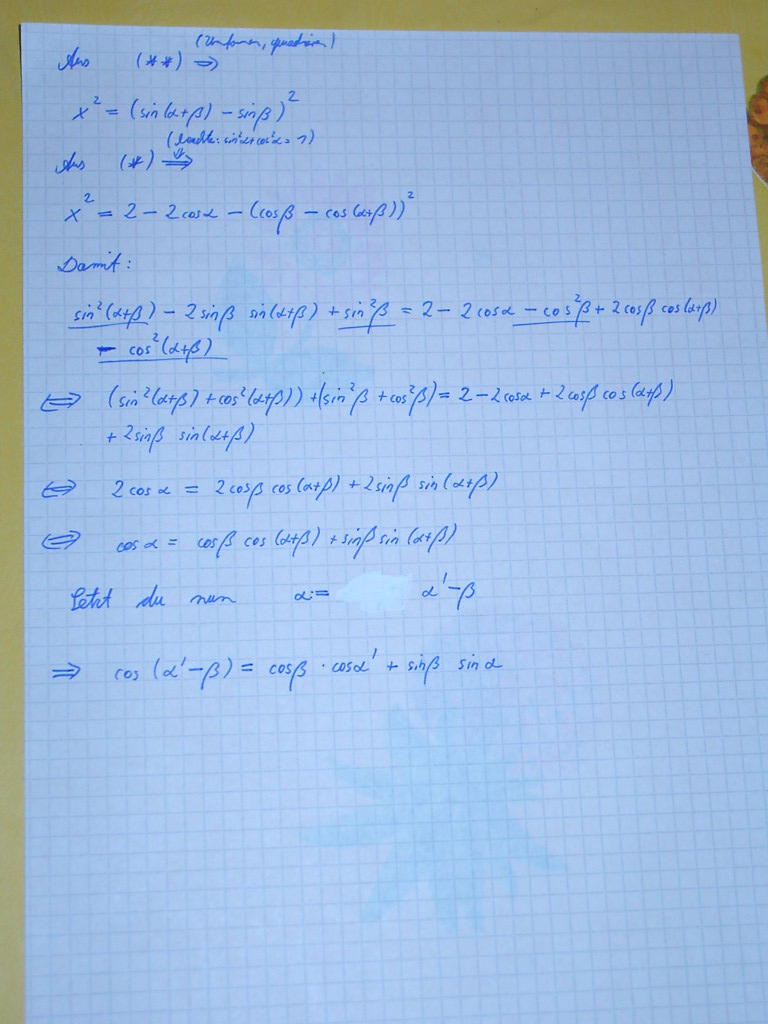 (Umformen, quadrieren)
Aus (**) ⇒
x² = (sin(α+β) - sinβ)²
(beachte: sin²α+cos²α = 1)
Aus (*) ⇒
x² = 2 - 2cosα - (cosβ - cos(α+β))²
Damit:
sin²(α+β) - 2sinβ sin(α+β) + sin²β = 2 - 2cosα - cos²β + 2cosβ cos(α+β)
- cos²(α+β)
⇔ (sin²(α+β) + cos²(α+β)) + (sin²β + cos²β) = 2 - 2cosα + 2cosβ cos(α+β)
+ 2sinβ sin(α+β)
⇔ 2cosα = 2cosβ cos(α+β) + 2sinβ sin(α+β)
⇔ cosα = cosβ cos(α+β) + sinβ sin(α+β)
Setzt du nun α:= α'-β
⇒ cos(α'-β) = cosβ · cosα' + sinβ sinα